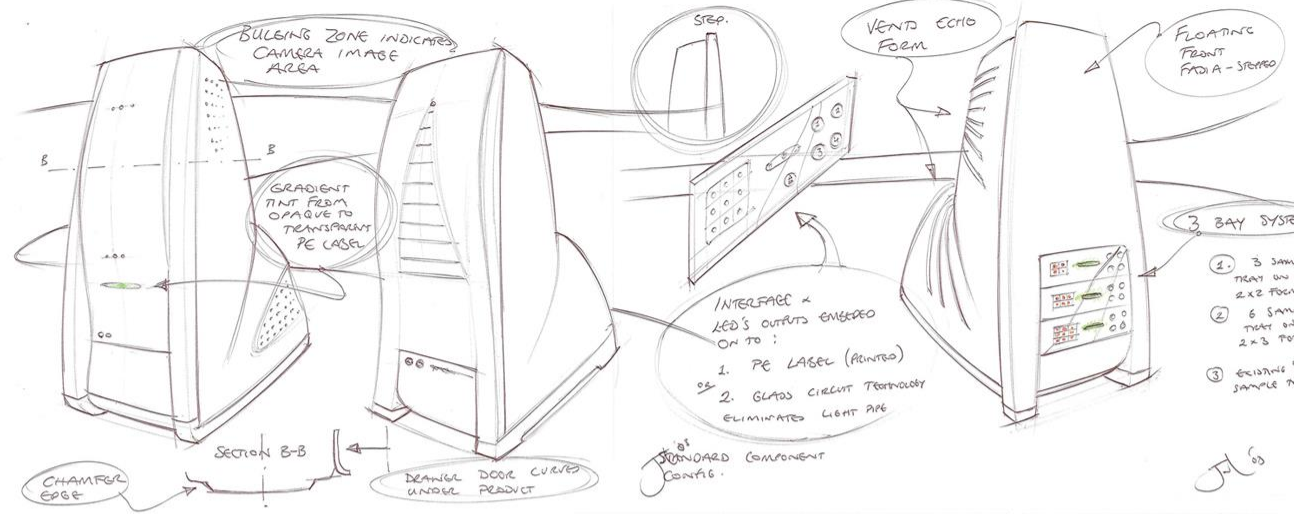 BULGING ZONE INDICATES
CAMERA IMAGE
AREA
B
B
GRADIENT
TINT FROM
OPAQUE TO
TRANSPARENT
PE LABEL
SECTION B-B
CHAMFER
EDGE
DRAWER DOOR CURVES
UNDER PRODUCT
STEP.
1
2
3
4
INTERFACE &
LED'S OUTPUTS EMBEDED
ON TO :
1. PE LABEL (PRINTED)
OR
2. GLASS CIRCUIT TECHNOLOGY
ELIMINATES LIGHT PIPE
STANDARD COMPONENT
CONFIG.
VENTS ECHO
FORM
FLOATING
FRONT
FADIA - STEPPED
3 BAY SYSTE
1. 3 SAM
TRAY ON
2x2 FOR
2 6 SAM
TRAY ON
2x3 FO
3 EXISTING
SAMPLE T
'03